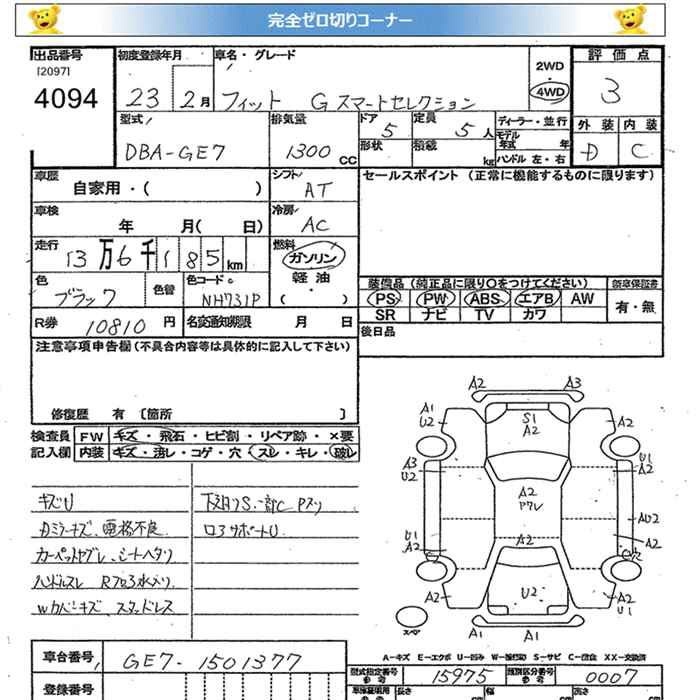 完全ゼロ切りコーナー
出品番号 初度登録年月 車名・グレード 2WD 4WD 評価点
[2097]
4094 23 2月 フィット G スマートセレクション 3
型式 排気量 ドア 定員 ディーラー・並行 外装 内装
DBA-GE7 1300 CC 5 5人 モデル年式 年 D C
形状 積載 kg ハンドル 左・右
車歴 シフト セールスポイント (正常に機能するものに限ります)
自家用・( ) AT
車検 冷房
年 月( 日) AC
走行 燃料
13万6千185km ガソリン
軽油
・( )
色 色替 色コード 装備品 (純正品に限り○をつけてください) 新車保証書
ブラック NH731P PS PW ABS エアB AW 有・無
SR ナビ TV カワ
R券 10810 円 名変通知期限 月 日 後日品
注意事項申告欄 (不具合内容等は具体的に記入して下さい)
修復歴 有 [箇所 ]
検査員 FW キズ・飛石・ヒビ割・リペア跡・×要
記入欄 内装 キズ・汚レ・コゲ・穴・スレ・キレ・破レ
キズU 下廻りS.一部C Pスリ
Dミラーキズ、電格不良 コアサポートU
カーペットヤブレ、シートヘタリ
ハンドルスレ Rフロア水入り
Wカバーキズ スタッドレス
A2 A3
A1 U2 S1 A2 A2
A3 U2 U1 A2
A2 アワレ
AU2
U1 A2 A2 穴
A2 U2 A2 U1
スペア A1 A1
A-キズ E-エクボ U-凹み W-補修跡 S-サビ C-腐食 XX-交換済
車台番号 GE7-1501377 型式指定番号 参考 15975 類別区分番号 参考 0007
登録番号 長さ 幅 高さ